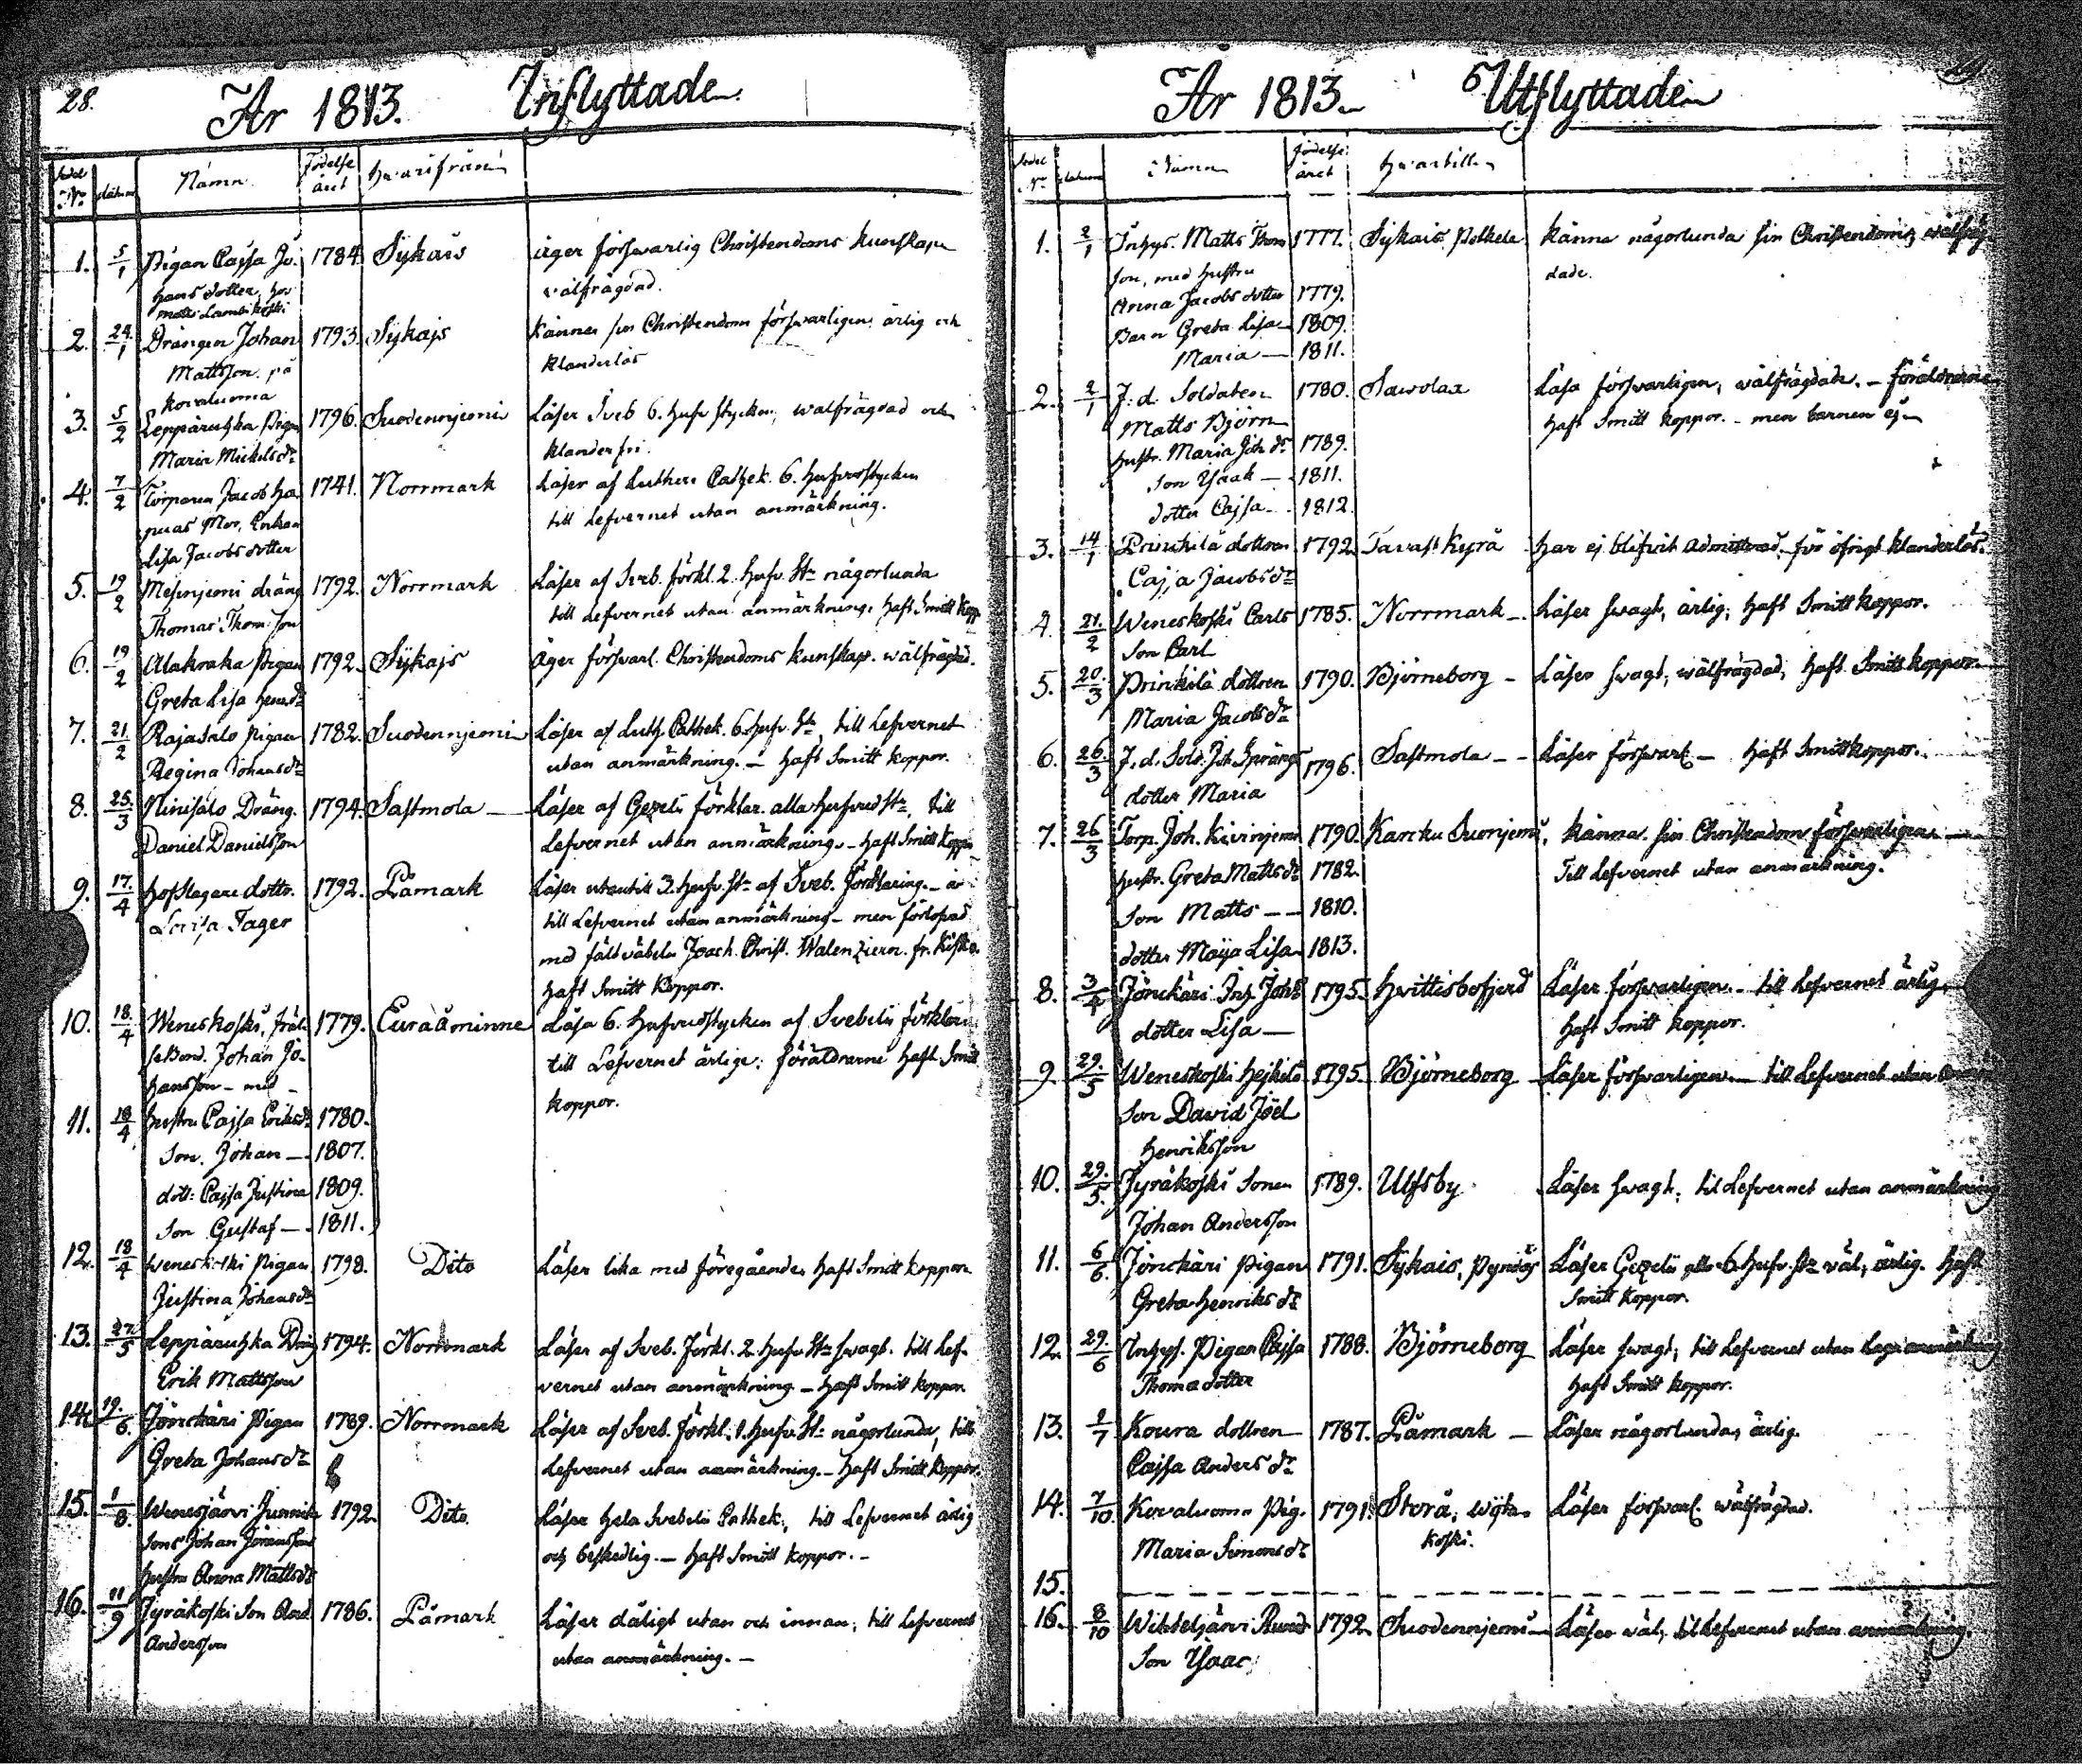 28.
År 1813. Inflyttade
Sedel
No datum Namn Födelse
året hvarifrån
1. 5/1 Pigan Cajsa Jo- 1784. Sÿkais äger förswarlig Christendoms kunskap
hans dotter, wälfrägdad.
2. 24/1 Drängen Johan 1793. Sÿkajs känner sin Christendom förswarligen, ärlig och
Mattsson på klanderlös
Kovaluoma
3. 5/2 Leppäruhka Pigan 1796. Suodennjemi Läser Sveb 6. hufv stycken, wälfrägdad och
Maria Mickelsdr klanderfri.
4. 7/2 Torparen Jacob Ha- 1741. Norrmark Läser af Luthers Cathek. 6. hufvudstycken
puas Mor, Enkan till Lefvernet utan anmärkning.
Lisa Jacobs dotter
5. 19/2 Mesinjemi dräng 1792. Norrmark Läser af Sveb. förkl. 2. hufv. Str någorlunda
Thomas Thomsson till Lefvernet utan anmärkning. haft Smitt kopp
6. 19/2 Alakraka Pigan 1792. Sÿkajs Äger förswarl. Christendoms kunskap. wälfrägdad.
Greta Lisa
7. 21/2 Rajasalo Pigan 1782. Suodennjemi Läser af Luth. Cathek. 6. hufv. Str, till Lefvernet
Regina Johansdr utan anmärkning. — haft Smitt koppor.
8. 25/3 Ninisalo Dräng. 1794. Sastmola — Läser af Gezelii förklar. alla hufvud Str, till
Daniel Danielsson Lefvernet utan anmärkning. – haft Smitt koppor
9. 17/4 Hofslagare dottr. 1792. Påmark Läser utantill 3. hufv. Str af Sveb. förklaring. – är
Lovisa Fager till Lefvernet utan anmärkning – men förlofvad
med fältväbeln Joach. Christ. Walenziern. fr.
haft Smitt koppor.
10. 18/4 Weneskoski, 1779. Eura Åminne Läsa 6. hufvudstycken af Svebelii förklar.
Johan Jo- till Lefvernet ärlige: föräldrarne haft Smitt
hansson – med – koppor.
11. 18/4 hustru Cajsa Eriksdr 1780.
Son. Johan — 1807.
dott: Cajsa Justina 1809.
Son Gustaf — 1811.
12. 18/4 Weneskoski Pigan 1798. Dito Läser lika med föregående, haft Smitt koppor
Justina Johansdr
13. 27/5 Leppäruhka Dräng 1794. Norrmark Läser af Sveb. förkl. 2. hufv. Str swagt. till Lef-
Erik Mattsson vernet utan anmärkning – haft Smitt koppor.
14. 19/6. Jönckäri Pigan 1789. Norrmark Läser af Sveb. förkl. 1. hufv. Str någorlunda, till
Greta Johansdr Lefvernet utan anmärkning. – haft Smitt koppor.
15. 1/8. Wenesjärvi 1792. Dito. Läser hela Svebelii Cathek, till Lefvernet ärlig
Johan och beskedlig. — haft Smitt koppor. –
hustru Anna Mattsdr
16. 11/9 Jyräkoski Son 1786. Påmark Läser dåligt utan och innan, till Lefvernet
Andersson utan anmärkning. –
År 1813. Utflyttade
Sedel
No datum Namn födelse
året hvartill
1. 2/1 Inhys. Matts Thom 1777. Sÿkais känna någorlunda sin Christendom, wälfräg-
son, med hustru dade.
Anna Jacobs dotter 1779.
Barn Greta Lisa 1809.
Maria — 1811.
2. 2/1 f. d. Soldaten 1780. Sawolax Läsa förswarligen, wälfrägdade. – föräldrarne
Matts Björn haft Smitt koppor. – men barnen ej
hustr. Maria Joh dr 1789.
Son Isaak — 1811.
dotter Cajsa – 1812.
3. 14/1 Prinkilä dottren 1792. Tavast Kyrä har ej blifvit admitterad, för öfrigt klanderlös.
Cajsa Jacobsdr
4. 21/2 Weneskoski Carls 1785. Norrmark – Läser swagt, ärlig; haft Smitt koppor.
Son Carl
5. 20/3 Prinkilä dottren 1790. Björneborg – Läser swagt, wälfrägdad, haft Smitt koppor.
Maria Jacobsdr
6. 26/3 f. d. Sold. Joh Spräng 1796. Sastmola – – Läser förswarl. – haft Smitt koppor.
dotter Maria
7. 26/3 Torp. Joh. Kivinjemi 1790. Karcku Suonjemi, känna sin Christendom förswarligen —
hustr. Greta Mattsdr 1782. Till Lefvernet utan anmärkning.
Son Matts – – 1810.
dotter Maija Lisa 1813.
8. 3/4 Jönckäri Inh. Johs 1795. Hvittisbofjerd Läser förswarligen – till Lefvernet ärlig,
dotter Lisa — haft Smitt koppor.
9. 29/5 Weneskoski Hejkilä 1795. Björneborg – Läser förswarligen – till Lefvernet utan
Son David Joël
Henriksson
10. 29/5. Jyräkoski Sonen 1789. Ulfsby Läser swagt, til Lefvernet utan anmärkning
Johan Andersson
11. 6/6. Jönckäri Pigan 1791. Sÿkais, Läser Gezelii alla 6. hufv. Str väl, ärlig. haft
Greta Henriksdr Smitt koppor.
12. 29/6 Inhys. Pigan Cajsa 1788. Björneborg Läser swagt, till Lefvernet utan anmärkning
Thoma dotter haft Smitt koppor.
13. 9/7 Koura dottren 1787. Påmark – Läser någorlunda, ärlig.
Cajsa Andersdr
14. 7/10. Kovaluoma Pig. 1791. Storå, Läser förswarl. wälfrägdad.
Maria Simonsdr koski.
15.
16. 8/10 Wihteljärvi 1792. Suodennjemi – Läser väl, til Lefvernet utan anmärkning.
Son Isaac